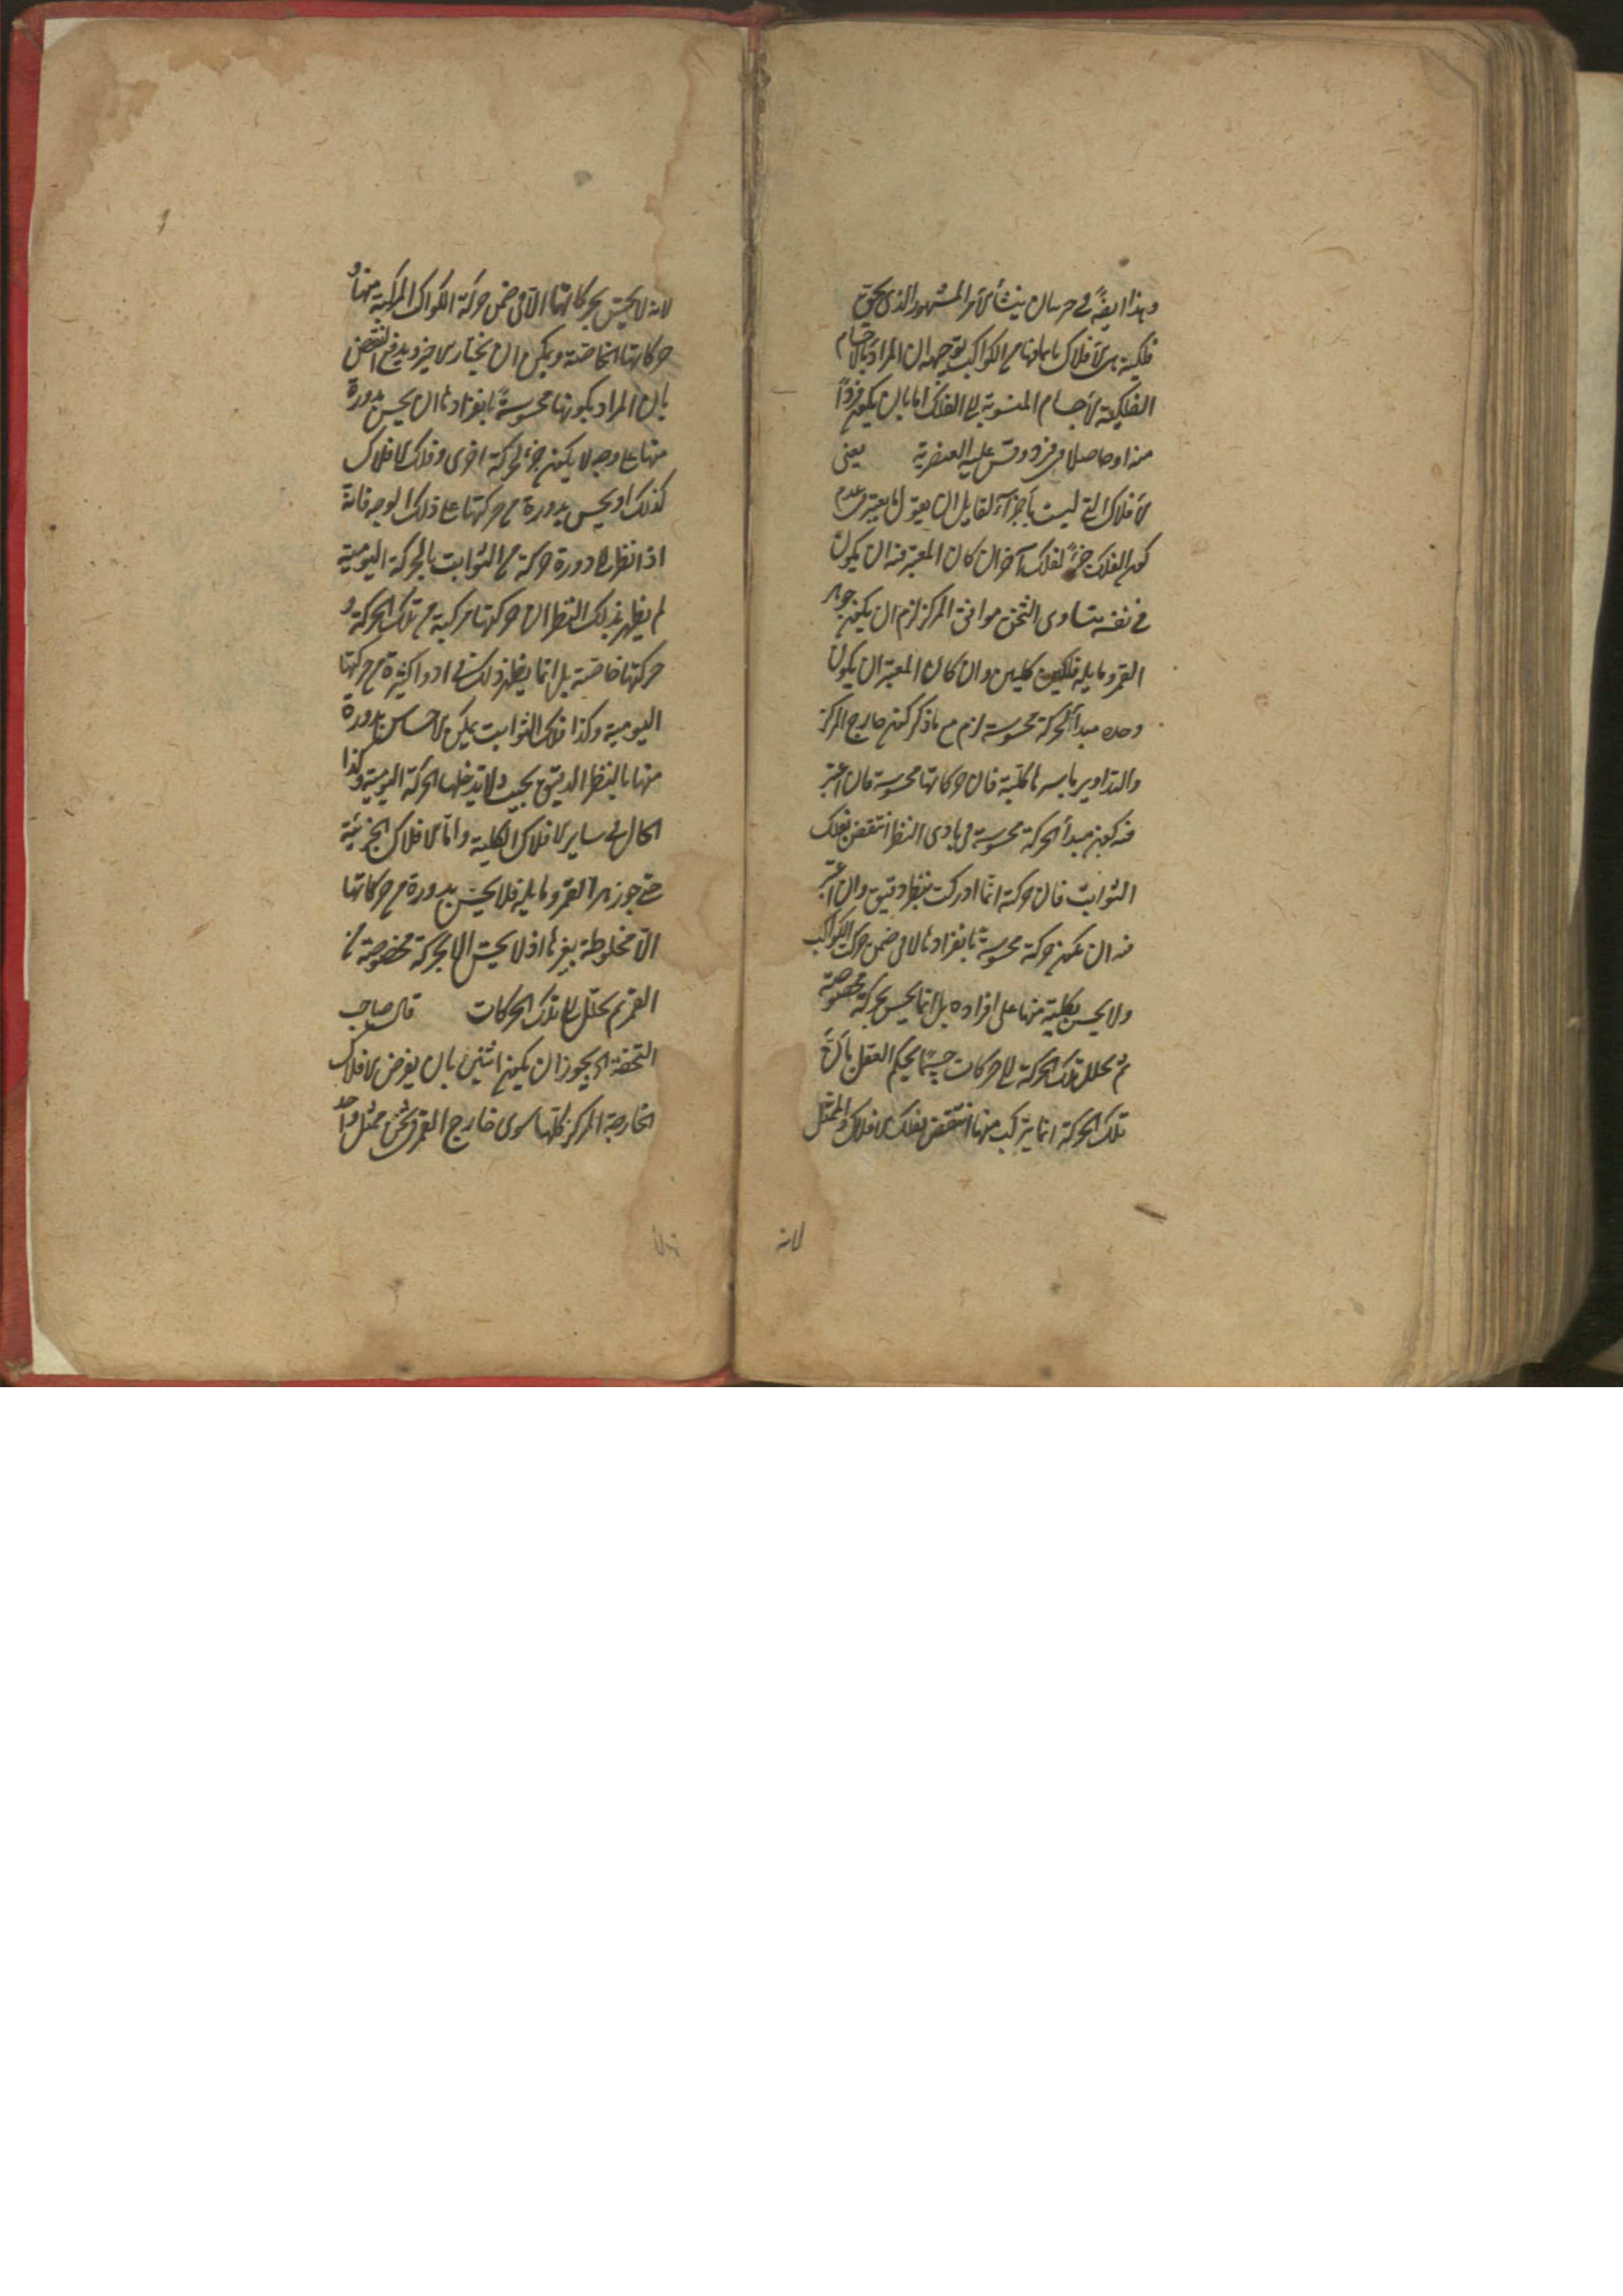 وهذا ايضاً في حرسان منشأ الامر المشهور الذي يحق
فلكية هي الافلاك بما فيها من الكواكب توجيهه ان المراد بالاجسام
الفلكية الاجسام المنسوبة الى الفلك اما بان يكون فرداً
منه او حاصلا في فرد وقس عليه العنصرية يعني
الافلاك التي ليست باجزآء لقايل ان يقول ان اعتبر عدم
كون الفلك جزءً لفلك آخر ان كان المعتبر فيه ان يكون
في نفسه متساوى الثخن موافق المركز لزم ان يكون جوزهر
القمر ومايله فلكين كليين وان كان المعتبر ان يكون
وحده مبدأ لحركة محسوسة لزم مع ما ذكر كون خارج المركز
والتداوير باسرها كلية فان حركاتها محسوسة فان اعتبر
فيه كونه مبدأ لحركة محسوسة في بادى النظر انتقض بفلك
الثوابت فان حركته انما ادركت بنظر دقيق وان اعتبر
فيه ان يكون حركته محسوسةً بانفرادها لا في ضمن حركة الكواكب
ولا يحس بكلية منها على افراده بل انما يحس بحركة مخصوصة
ثم يحلل تلك الحركة الى حركات حسبما يحكم العقل بان
تلك الحركة انما يتركب منها انتقض بفلك الافلاك والممثل
لانه
لانه لا يحس بحركاتها الا في ضمن حركة الكواكب المركبة منها و
حركاتها الخاصة ويمكن ان يختار الاخير ويدفع النقض
بان المراد بكونها محسوسةً بانفرادها ان يحس بدورة
منها على وجه لا يكون جزء لحركة اخرى وفلك الافلاك
كذلك او يحس بدورة من حركتها على ذلك الوجه فانه
اذا نظر الى دورة حركة من الثوابت بالحركة اليومية
لم يظهر بذلك النظر ان حركتها مركبة من تلك الحركة و
حركتها خاصة بل انما يظهر ذلك في ادوار كثيرة من حركتها
اليومية وكذا فلك الثوابت يمكن الاحساس بدورة
منها بالنظر الدقيق بحيث لا يتدخلها الحركة اليومية وكذا
الحال في ساير الافلاك الكلية واما الافلاك الجزئية
حتى جوزهر القمر ومايله فلا يحس بدورة من حركاتها
الا مخلوطة بغيرها اذ لا يحس الا بحركة مخصوصة من
القمر ثم يحلل الى تلك الحركات قال صاحب
التحفة انه يجوز ان يكون اثنين بان يفرض الافلاك
الخارجة المركز كلها سوى خارج القمر في ثخن ممثل واحد